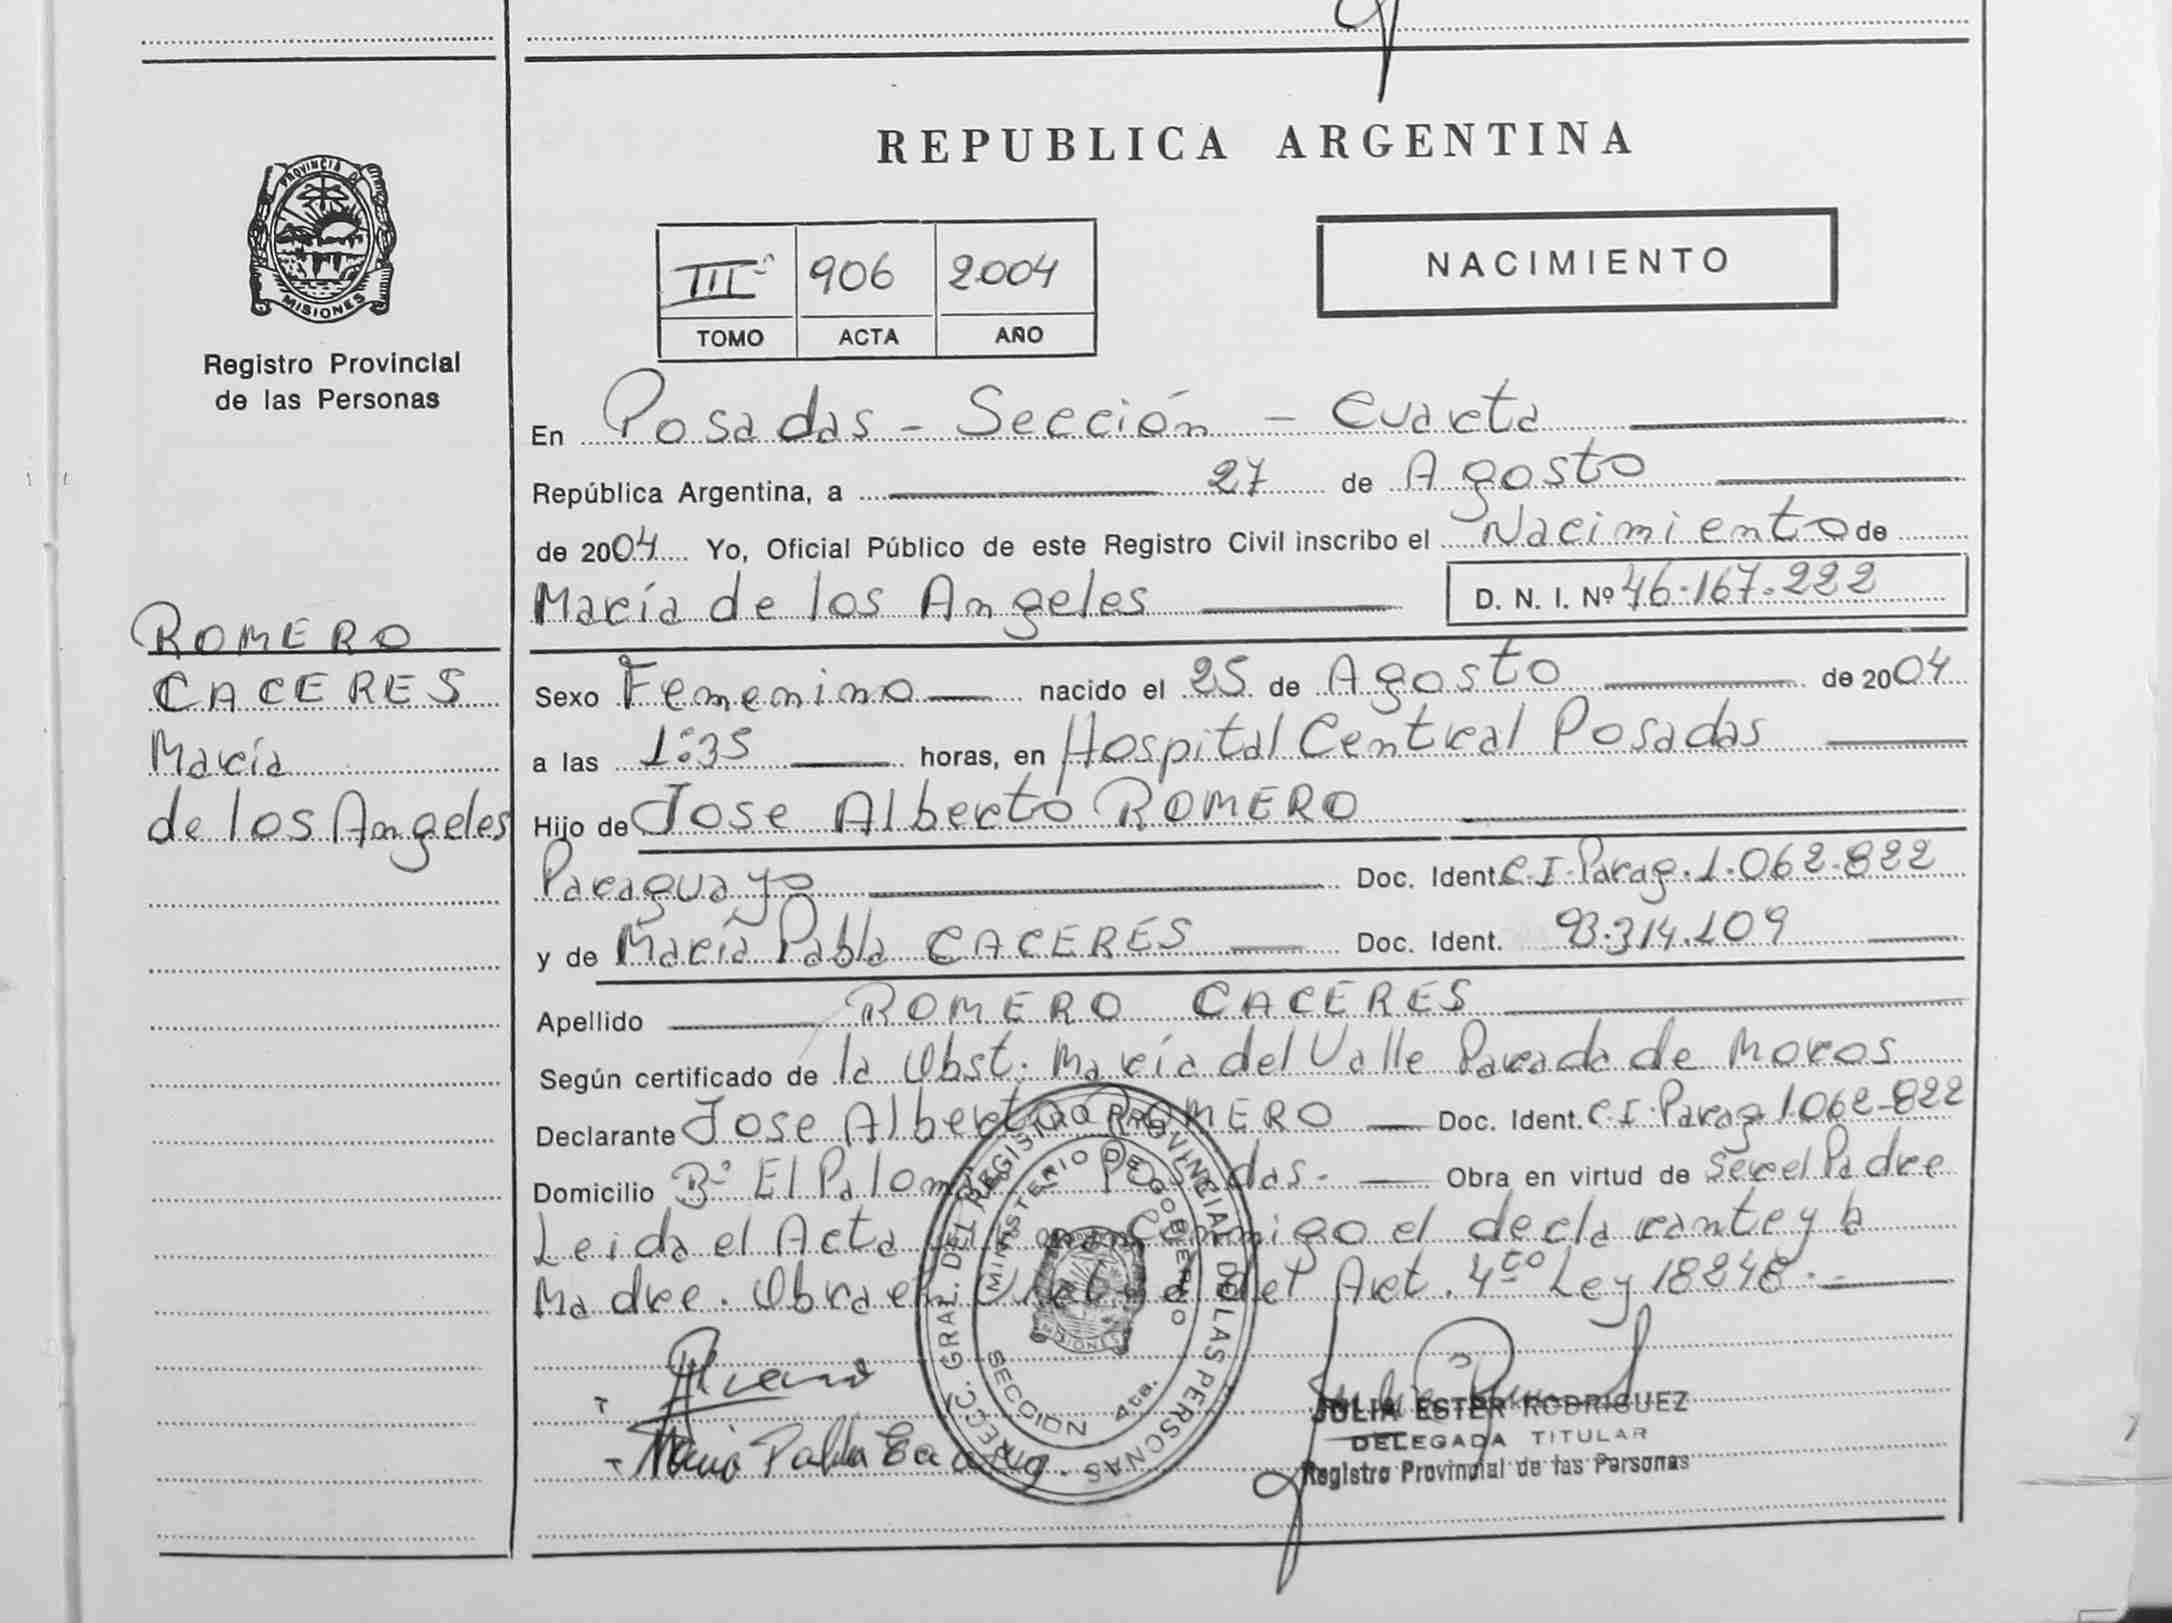 REPUBLICA ARGENTINA
PROVINCIA DE
MISIONES
Registro Provincial
de las Personas
III 906 2004
TOMO ACTA AÑO
NACIMIENTO
ROMERO
CACERES
María
de los Angeles
En Posadas - Sección - Cuarta
República Argentina, a 27 de Agosto
de 2004 Yo, Oficial Público de este Registro Civil inscribo el Nacimiento de
María de los Angeles D. N. I. Nº 46.167.222
Sexo Femenino nacido el 25 de Agosto de 2004
a las 1:35 horas, en Hospital Central Posadas
Hijo de Jose Alberto ROMERO
Paraguayo Doc. Ident. C.I. Parag. 1.062.822
y de María Pabla CACERES Doc. Ident. 93.314.109
Apellido ROMERO CACERES
Según certificado de la Obst. María del Valle Parada de Moros
Declarante Jose Alberto ROMERO Doc. Ident. C.I. Parag 1062-822
Domicilio Bº El Palomar Posadas. Obra en virtud de ser el Padre
Leida el Acta conmigo el declarante y la
Madre. Obra en Virtud del Art. 4to Ley 18248.
DIRECC. GRAL. DEL REGISTRO PROVINCIAL DE LAS PERSONAS
MINISTERIO DE GOBIERNO
SECCION 4ta.
Maria Pabla
JULIA ESTER RODRIGUEZ
DELEGADA TITULAR
Registro Provincial de las Personas